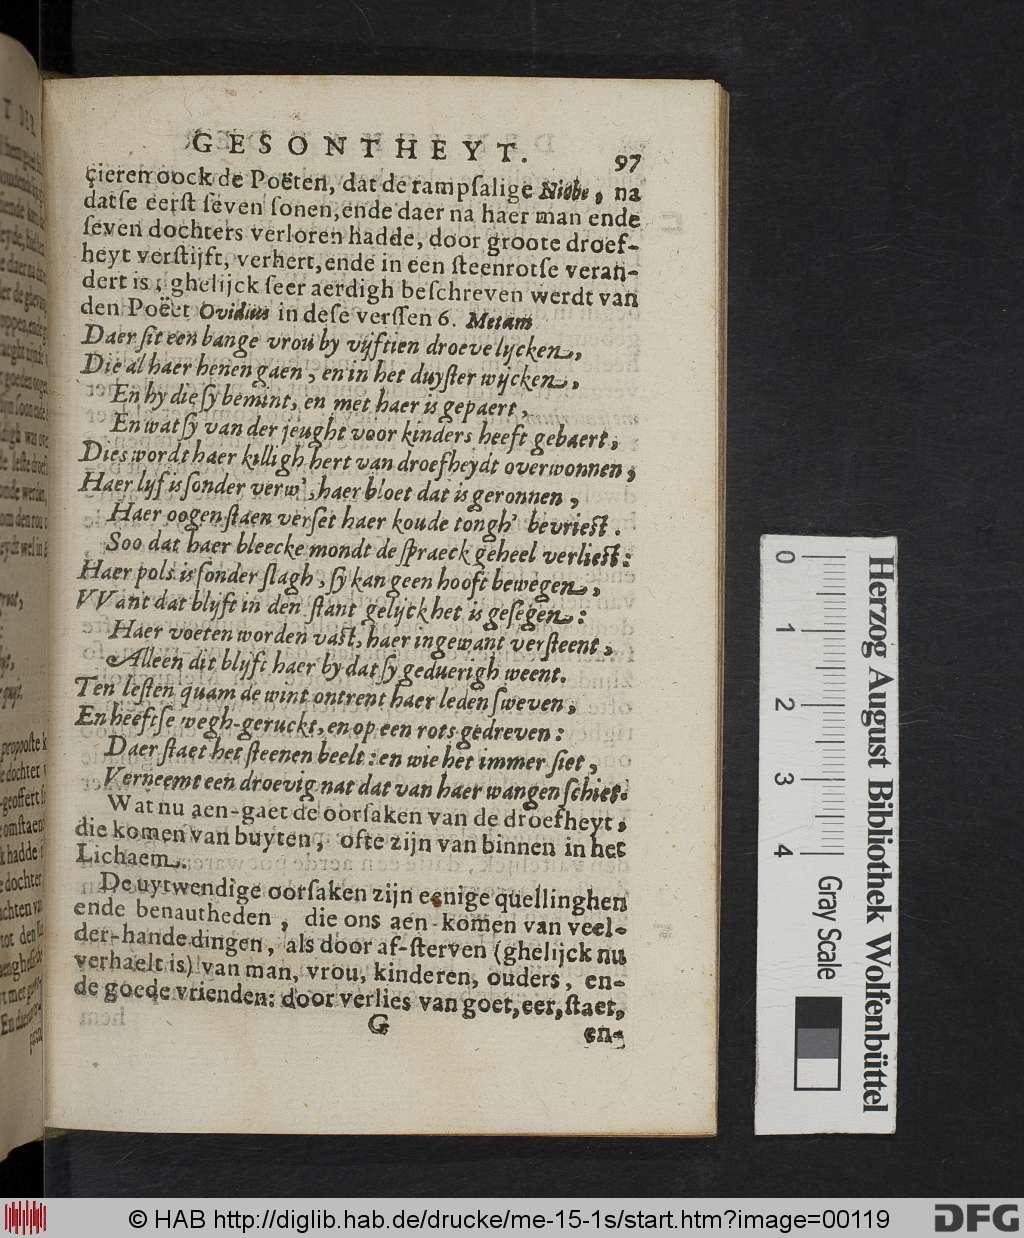 GESONTHEYT. 97
çieren oock de Poëten, dat de rampsalige Niobe, na
datse eerst seven sonen, ende daer na haer man ende
seven dochters verloren hadde, door groote droef-
heyt verstijft, verhert, ende in een steenrotse veran-
dert is; ghelijck seer aerdigh beschreven werdt van
den Poëet Ovidius in dese verssen 6. Metam
Daer sit een bange vrou by vijftien droeve lijcken,
Die al haer henen gaen, en in het duyster wijcken,
En hy die sy bemint, en met haer is gepaert,
En wat sy van der jeught voor kinders heeft gebaert,
Dies wordt haer killigh hert van droefheydt overwonnen,
Haer lijf is sonder verw', haer bloet dat is geronnen,
Haer oogen staen verset haer koude tongh' bevriest.
Soo dat haer bleecke mondt de spraeck geheel verliest:
Haer pols is sonder slagh, sy kan geen hooft bewegen,
VVant dat blijft in den stant gelijck het is gesegen:
Haer voeten worden vast, haer ingewant versteent,
Alleen dit blijft haer by dat sy geduerigh weent.
Ten lesten quam de wint ontrent haer leden sweven,
En heeftse wegh-geruckt, en op een rots gedreven:
Daer staet het steenen beelt: en wie het immer siet,
Verneemt een droevig nat dat van haer wangen schiet.
Wat nu aen-gaet de oorsaken van de droefheyt,
die komen van buyten, ofte zijn van binnen in het
Lichaem.
De uytwendige oorsaken zijn eenige quellinghen
ende benautheden, die ons aen-komen van veel-
der-hande dingen, als door af-sterven (ghelijck nu
verhaelt is) van man, vrou, kinderen, ouders, en-
de goede vrienden: door verlies van goet, eer, staet,
G en-
0 1 2 3 4
Gray Scale
Herzog August Bibliothek Wolfenbüttel
© HAB http://diglib.hab.de/drucke/me-15-1s/start.htm?image=00119
DFG